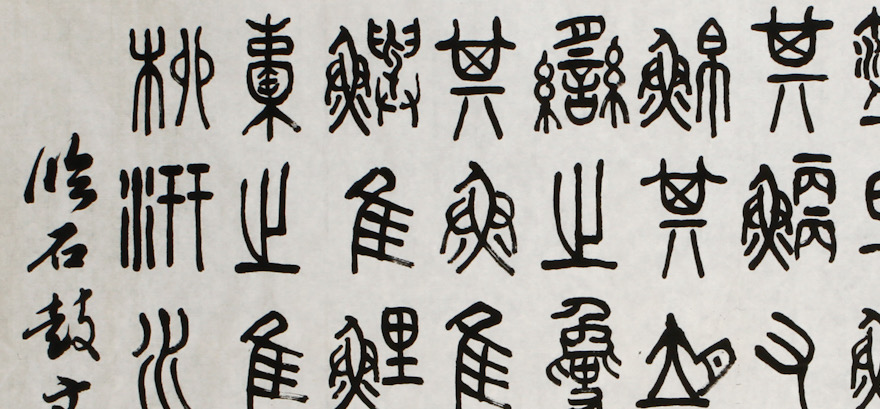 其鯾又
䱀其
臠之
其魚隹
鱮隹鯉
橐之隹
柳汧水
臨石鼓文